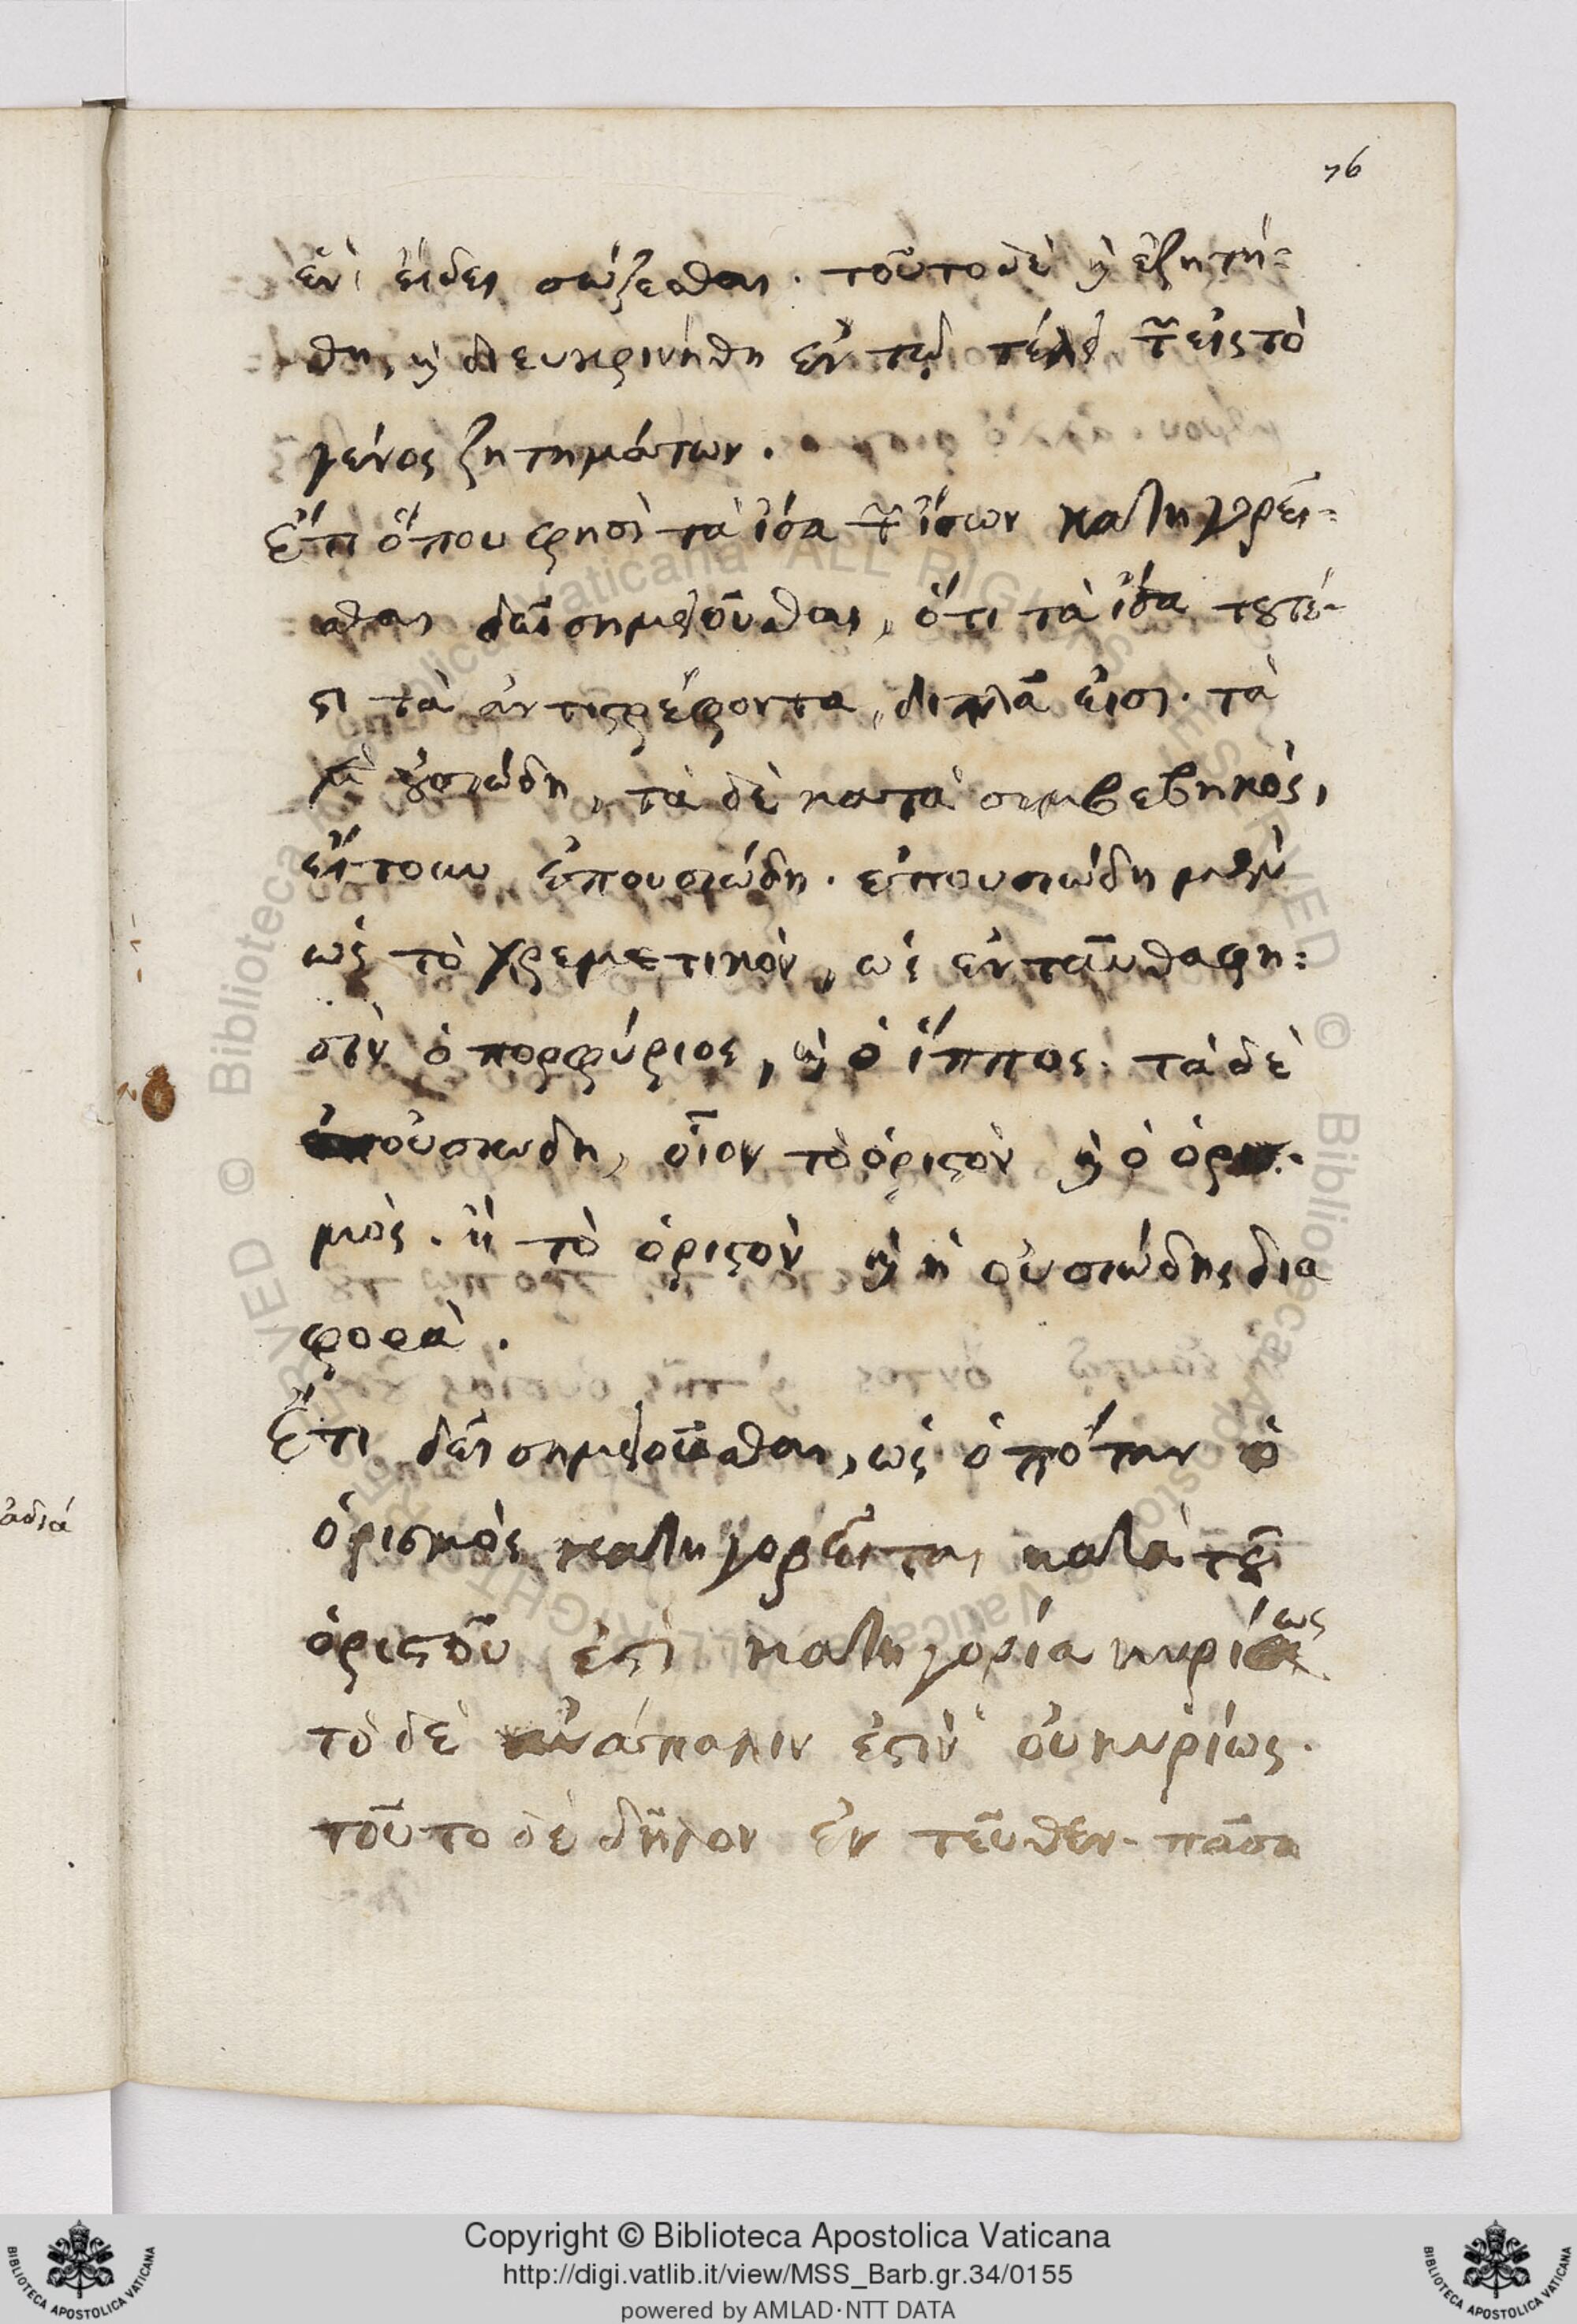 76
ἑνὶ εἴδει σώζεσθαι. τοῦτο δὲ ϗ ἐζητή=
θη, ϗ διευκρινήθη ἐν τῷ τέλει τῶν εἰς τὸ
γένος ζητημάτων.
Ἔτι ὅπου φησὶ τὰ ἴσα τῶν ἴσων κατηγορεῖ=
σθαι δεῖ σημειοῦσθαι, ὅτι τὰ ἴσα τȣτέ-
ϛι τὰ ἀντιϛρέφοντα, διπλᾶ εἰσι. τὰ
μὲν ȣσιώδη, τὰ δὲ κατὰ συμβεβηκός,
εἴτουν ἐπουσιώδη. ἐπουσιώδη μὲν
ὡς τὸ χρεμετικόν, ὡς ἐνταῦθα φη=
σὶν ὁ πορφύριος, ϗ ὁ ἵππος. τὰ δὲ
οὐσιώδη, οἷον τὸ ὁριϛὸν ϗ ὁ ὁρισ-
μός. ἢ τὸ ὁριϛὸν ϗ ἡ οὐσιώδης δια
φορά.
Ἔτι δεῖ σημειοῦσθαι, ὡς ὁπόταν ὁ
ὁρισμὸς κατηγορεῖται κατὰ τȣ͂
ὁριϛοῦ ἐϛὶ κατηγορία κυρίως
τὸ δὲ ἀνάπαλιν ἐϛὶν οὐ κυρίως.
τοῦτο δὲ δῆλον ἐντεῦθεν. πᾶσα
ἀδιά
Copyright © Biblioteca Apostolica Vaticana
http://digi.vatlib.it/view/MSS_Barb.gr.34/0155
powered by AMLAD·NTT DATA
BIBLIOTECA APOSTOLICA VATICANA
BIBLIOTECA APOSTOLICA VATICANA